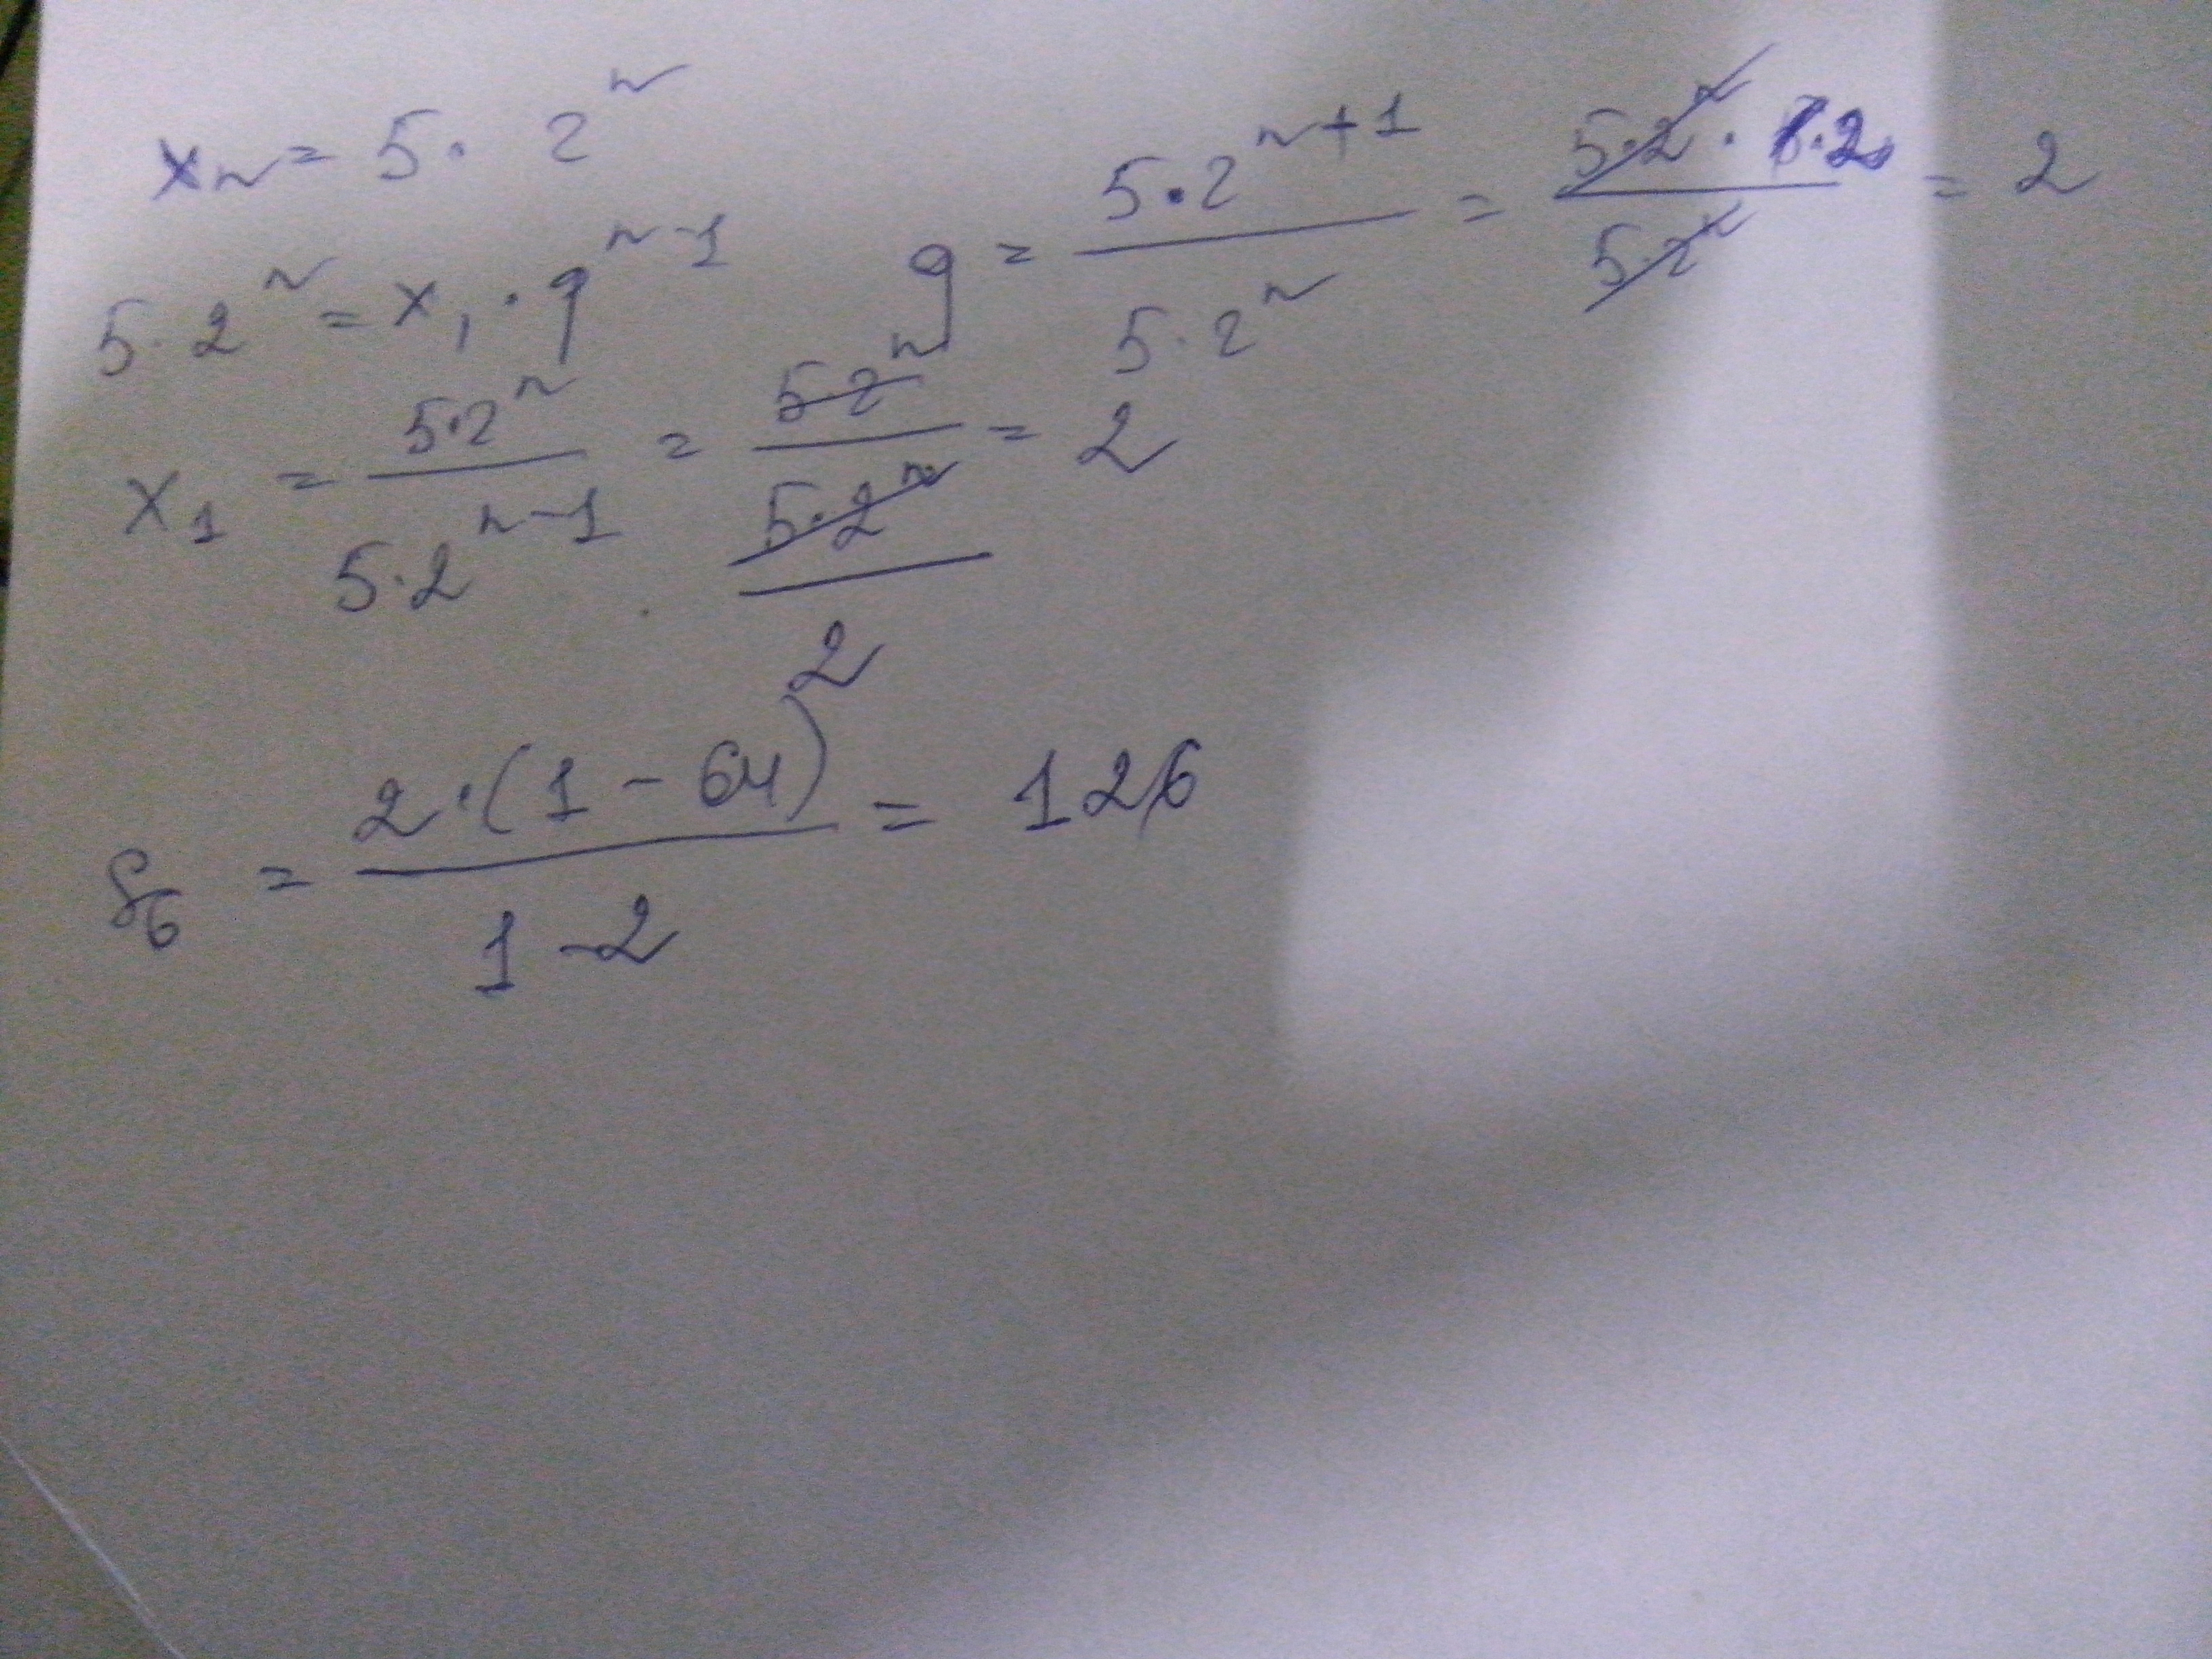 xₙ = 5 · 2ⁿ
5 · 2ⁿ = x₁ · qⁿ⁻¹
q = (5·2ⁿ⁺¹)/(5·2ⁿ) = (5·2ⁿ · 2)/(5·2ⁿ) = 2
x₁ = (5·2ⁿ)/(5·2ⁿ⁻¹) = (5 2ⁿ)/((5·2ⁿ)/2) = 2
S₆ = (2·(1 - 64))/(1 - 2) = 126